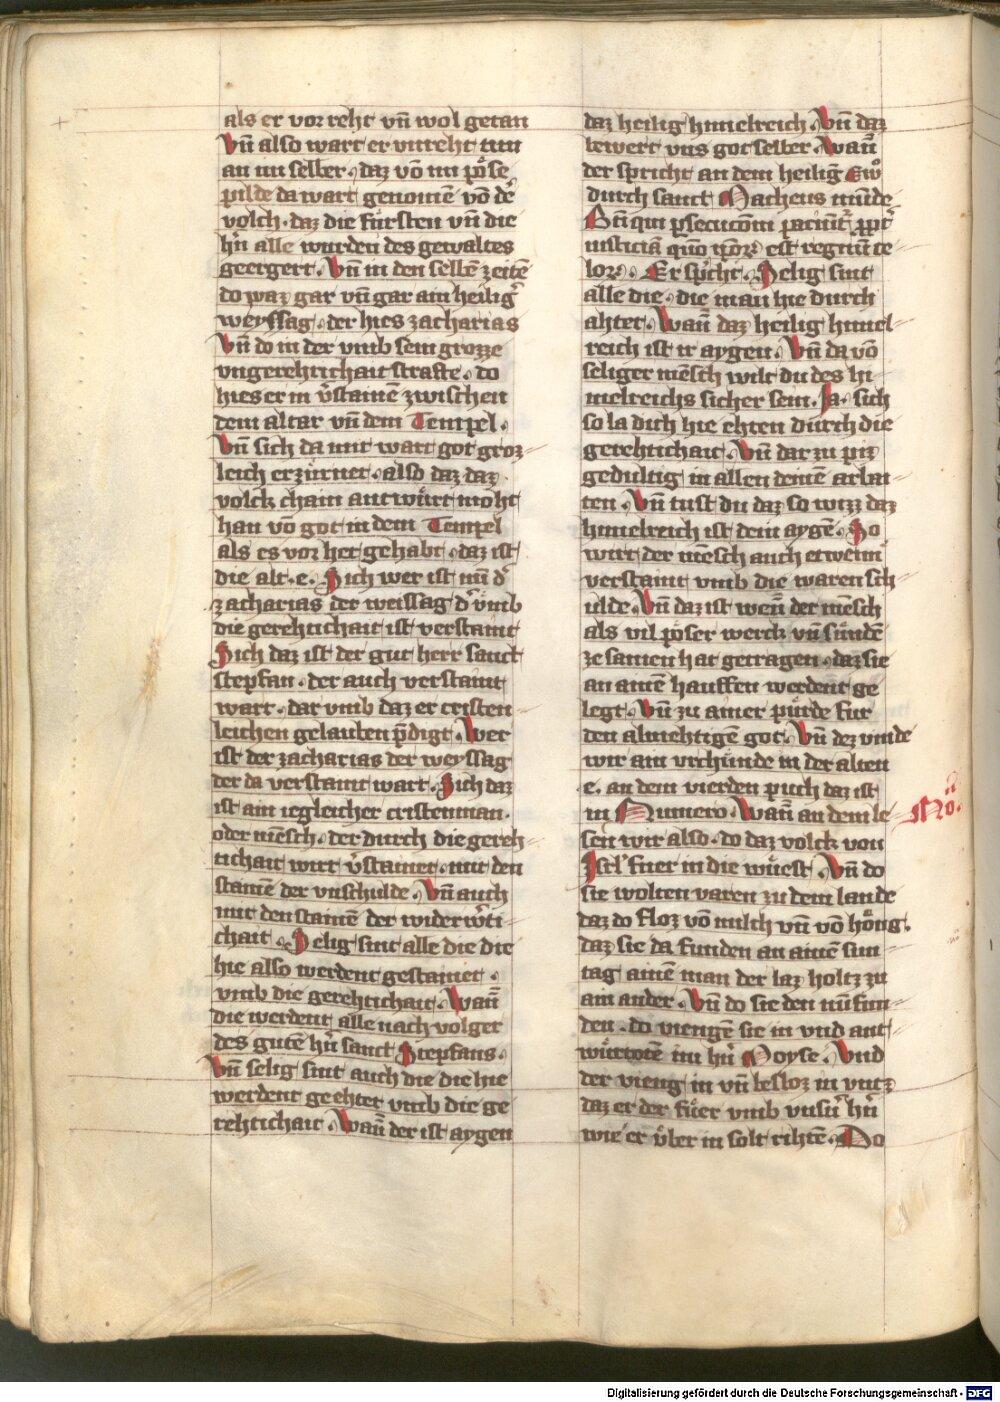 als er vor reht vn̄ wol getan
Vn̄ also wart er vnreht tun
an im selber · daz vō im pöse
pilde da wart genomē vō dē
volch · daz die fürsten vn̄ die
hn̄ alle wurden des gewaltes
geergert · Vn̄ in den selbē zeitē
do waz gar vn̄ gar ain heilig
weyssag · der hies zacharias
Vn̄ do in der vmb sein grozze
vngerehtichait strafte · do
hies er in v̓stainē zwischen
dem altar vn̄ dem Tempel ·
Vn̄ sich da mit wart got groz
leich erzürnet · also daz daz
volck chain antwürt moht
han vō got in dem Tempel
als es vor het gehabt · daz ist
die alt · e · Sich wer ist nū d̓
zacharias der weissag d̓ vmb
die gerehtichait ist verstaint
Sich daz ist der gut herr sanct
stepfan · der auch verstaint
wart · dar vmb daz er cristen
leichen gelauben p̄digt · Wer
ist der zacharias der weyssag
der da verstaint wart · Sich daz
ist ain iegleicher cristenman ·
oder mēsch · der durch die gereh
tichait wirt v̓stainet · mit den
stainē der vnschulde · Vn̄ auch
mit den stainē der widerw̓ti
chait · Selig sint alle die die
hie also werdent gestainet ·
vmb die gerehtichait · Wan̄
die werdent alle nach volger
des gutē hn̄ sanct Stepfans ·
Vn̄ selig sint auch die die hie
werdent geehtet vmb die ge
rehtichait · Wan̄ der ist aygen
daz heilig himelreich · Vn̄ daz
bewert vns got selber · Wan̄
der spricht an dem heiliḡ Ewo
durch sanct Matheus munde
Bn̄ qui ꝑsecucōm paciūt̓ ꝓpt̓
iusticiā quō ip̄oꝝ est regnū ce
loꝝ · Er sp̓cht · Selig sint
alle die · die man hie durch
ahtet · Wan̄ daz heilig himel
reich ist ir aygen · Vn̄ da vō
seliger mēsch wilt du des hi
melreichs sicher sein · Ja · sich
so la dich hie ehten durch die
gerehtichait · Vn̄ dar zu piz
gedultig in allen deinē arbai
ten · Vn̄ tust du daz so wizz daz
himelreich ist dein aygē · So
wirt der mēsch auch etwenn
verstaint vmb die waren sch
ulde · Vn̄ daz ist wen̄ der mēsch
als vil pöser werck vn̄ sündē
ze samen hat getragen · daz sie
an ainē hauffen werdent ge
legt · Vn̄ zu ainer pürde für
den almehtigē got · Vn̄ dez vinde
wir ain vrchünde in der alten
· e · an dem vierden puch daz ist
in Numero · Wan̄ an dem le
sen wir also · do daz volck von
Isrl̓ fuer in die wüest · Vn̄ do
sie wolten varen zu dem lande
daz do floz vō milch vn̄ vō höng ·
daz sie da funden an ainē sun
tag ainē man der laz holtz zu
ain ander · Vn̄ do sie den nu fun
den · do viengē sie in vnd ant
würtotē im hn̄ Moyse · Vnd
der vieng in vn̄ besloz in vntz
daz er der füer vmb vnsn̄ hn̄
wie er über in solt rihtē · Do
Digitalisierung gefördert durch die Deutsche Forschungsgemeinschaft - DFG